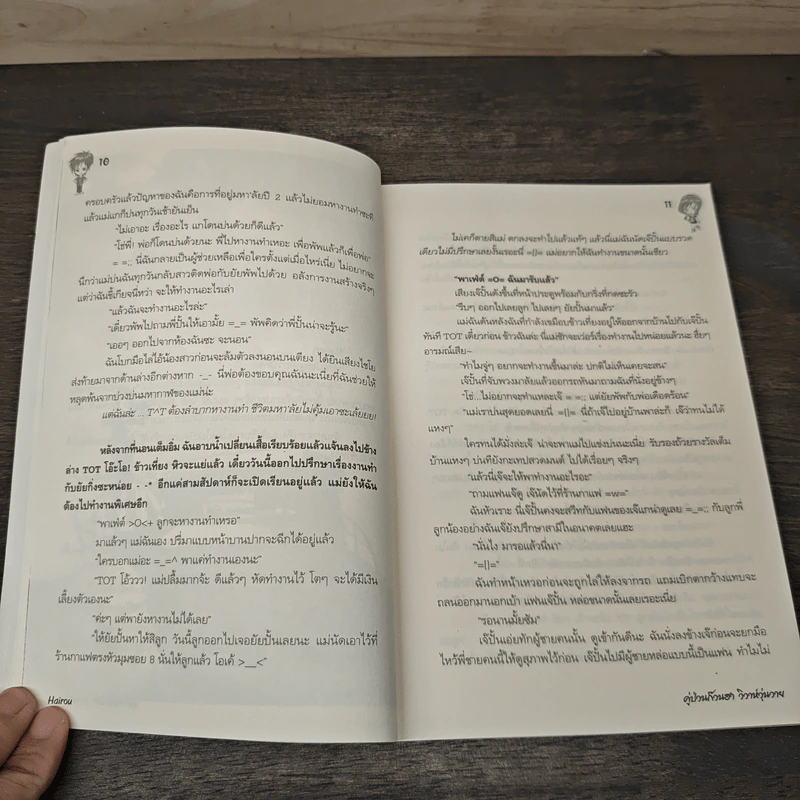 10
ครอบครัวแล้วปัญหาของฉันคือการที่อยู่มหา'ลัยปี 2 แล้วไม่ยอมหางานทำซะที
แล้วแม่แกก็บ่นทุกวันเช้ายันเย็น
"ไม่เอาอะ เรื่องอะไร แกโดนบ่นด้วยก็ดีแล้ว"
"โช่พี่! พ่อก็โดนบ่นด้วยนะ พี่ไปหางานทำเหอะ เพื่อพัพแล้วก็เพื่อพ่อ"
= =;; นี่ฉันกลายเป็นผู้ช่วยเหลือเพื่อใครตั้งแต่เมื่อไหร่เนี่ย ไม่อยากจะ
นึกว่าแม่บ่นฉันทุกวันกลับสาวติดพ่อกับยัยพัพไปด้วย อลังการงานสร้างจริงๆ
แต่ว่าฉันขี้เกียจนี่หว่า จะให้ทำงานอะไรเล่า
"แล้วฉันจะทำงานอะไรล่ะ"
"เดี๋ยวพัพไปถามพี่ปั้นให้เอามั้ย =_= พัพคิดว่าพี่ปั้นน่าจะรู้นะ"
"เออๆ ออกไปจากห้องฉันซะ จะนอน"
ฉันโบกมือไล่ไอ้น้องสาวก่อนจะล้มตัวลงนอนบนเตียง ได้ยินเสียงไชโย
ส่งท้ายมาจากด้านล่างอีกต่างหาก -_- นี่พ่อต้องขอบคุณฉันนะเนี่ยที่ฉันช่วยให้
หลุดพ้นจากบ่วงบ่นมหากาฬของแม่น่ะ
แต่ฉันล่ะ ... T^T ต้องลำบากหางานทำ ชีวิตมหา'ลัยไม่คุ้มเอาซะเล้ยยยย!
หลังจากที่นอนเต็มอิ่ม ฉันอาบน้ำเปลี่ยนเสื้อเรียบร้อยแล้วแจ้นลงไปข้าง
ล่าง TOT โอ๊ะโอ! ข้าวเที่ยง หิวจะแย่แล้ว เดี๋ยววันนี้ออกไปปรึกษาเรื่องงานทำ
กับยัยกิ่งซะหน่อย - -* อีกแค่สามสัปดาห์ก็จะเปิดเรียนอยู่แล้ว แม่ยังให้ฉัน
ต้องไปทำงานพิเศษอีก
"พาเฟ่ต์ >O<+ ลูกจะหางานทำเหรอ"
มาแล้วๆ แม่ฉันเอง ปรี่มาแบบหน้าบานปากจะฉีกได้อยู่แล้ว
"ใครบอกแม่อะ =_=^ พาแค่ทำงานเองนะ"
"TOT โอ้ววว! แม่ปลื้มมากจ้ะ ดีแล้วๆ หัดทำงานไว้ โตๆ จะได้มีเงิน
เลี้ยงตัวเองนะ"
"ค่ะๆ แต่พายังหางานไม่ได้เลย"
"ให้ยัยปั้นหาให้สิลูก วันนี้ลูกออกไปเจอยัยปั้นเลยนะ แม่นัดเอาไว้ที่
ร้านกาแฟตรงหัวมุมซอย 8 นั่นให้ลูกแล้ว โอเค้ >__<"
Hairou
11
ไม่เคก็ตายสิแม่ ตกลงจะทำไปแล้วแท้ๆ แล้วนี่แม่ฉันนัดเจ๊ปั้นแบบรวด
เดียวไม่มีปรึกษาเลยงั้นเรอะนี่ =[]= แม่อยากให้ฉันทำงานขนาดนั้นเชียว
"พาเฟ่ต์ =O= ฉันมารับแล้ว"
เสียงเจ๊ปั้นดังขึ้นที่หน้าประตูพร้อมกับกริ่งที่กดซะรัว
"รีบๆ ออกไปเลยลูก ไปเลยๆ ยัยปั้นมาแล้ว"
แม่ฉันดันหลังฉันที่กำลังเขมือบข้าวเที่ยงอยู่ให้ออกจากบ้านไปกับเจ๊ปั้น
ทันที TOT เดี๋ยวก่อน ข้าวฉันล่ะ นี่แม่ชักจะเว่อร์เรื่องทำงานไปหน่อยแล้วนะ ฮึ่ยๆ
อารมณ์เสีย~
"ทำไมจู่ๆ อยากจะทำงานขึ้นมาล่ะ ปกติไม่เห็นเคยจะสน"
เจ๊ปั้นที่จับพวงมาลัยแล้วออกรถหันมาถามฉันที่นั่งอยู่ข้างๆ
"โช่...ไม่อยากจะทำแหละเจ๊ = =;; แต่ยัยพัพกับพ่อเดือดร้อน"
"แม่เราบ่นสุดยอดเลยนี่ =[]= นี่ถ้าเจ๊ไปอยู่บ้านพาล่ะก็ เจ๊ว่าทนไม่ได้
แหงๆ"
ใครทนได้มั่งล่ะเจ๊ น่าจะพาแม่ไปแข่งบ่นนะเนี่ย รับรองถ้วยรางวัลเต็ม
บ้านแหงๆ บ่นทียังกะเทปสวดมนต์ ไปได้เรื่อยๆ จริงๆ
"แล้วนี่เจ๊จะให้พาทำงานอะไรอะ"
"ถามแฟนเจ๊ดู เจ๊นัดไว้ที่ร้านกาแฟ =w="
ฉันหัวเราะ นี่เจ๊ปั้นคงจะสวีทกับแฟนของเจ๊แกน่าดูเลย =_=;; กับลูกพี่
ลูกน้องอย่างฉันเจ๊ยังปรึกษาสามีในอนาคตเลยแฮะ
"นั่นไง มารอแล้วนี่นา"
"=[]="
ฉันทำหน้าเหวอก่อนจะถูกไล่ให้ลงจากรถ แถมเบิกตากว้างแทบจะ
ถลนออกมานอกเบ้า แฟนเจ๊ปั้น หล่อขนาดนั้นเลยเรอะเนี่ย
"รอนานมั้ยซัม"
เจ๊ปั้นเอ่ยทักผู้ชายคนนั้น ดูเข้ากันดีนะ ฉันนั่งลงข้างเจ๊ก่อนจะยกมือ
ไหว้พี่ชายคนนี้ให้ดูสุภาพไว้ก่อน เจ๊ปั้นไปมีผู้ชายหล่อแบบนี้เป็นแฟน ทำไมไม่
คู่ป่วนก๊วนฮา วิวาห์วุ่นวาย